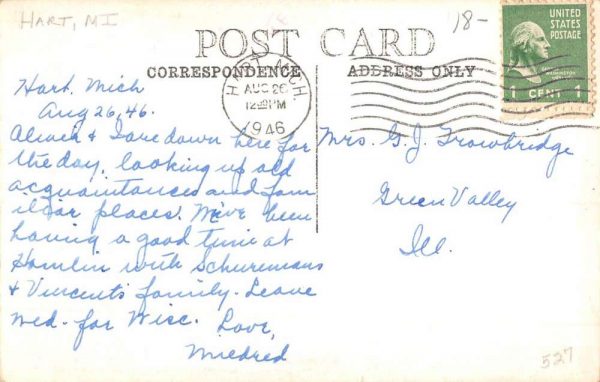 HART, MI
18-
POST CARD
CORRESPONDENCE
ADDRESS ONLY
UNITED
STATES
POSTAGE
WASHINGTON
1 CENT 1
HART, MICH.
AUG 26
12 PM
1946
Hart. Mich
Aug 26, 46.
& I are down here for
the day, looking up old
acquaintances and fam
iliar places. We've been
having a good time at
Hamlin with Schuremans
& Vincents family. Leave
Wed. for Wisc. Love,
Mildred
Mrs. G. J. Trowbridge
Green Valley
Ill.
527